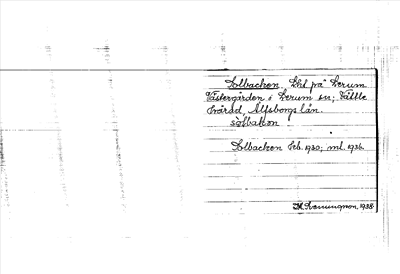 Solbacken, lht på Lerum
Västergården i Lerum sn; Vättle
härad, Älfsborgs län.
sòlbakkən
Solbacken Jeb. 1930; ml. 1936.
1938.